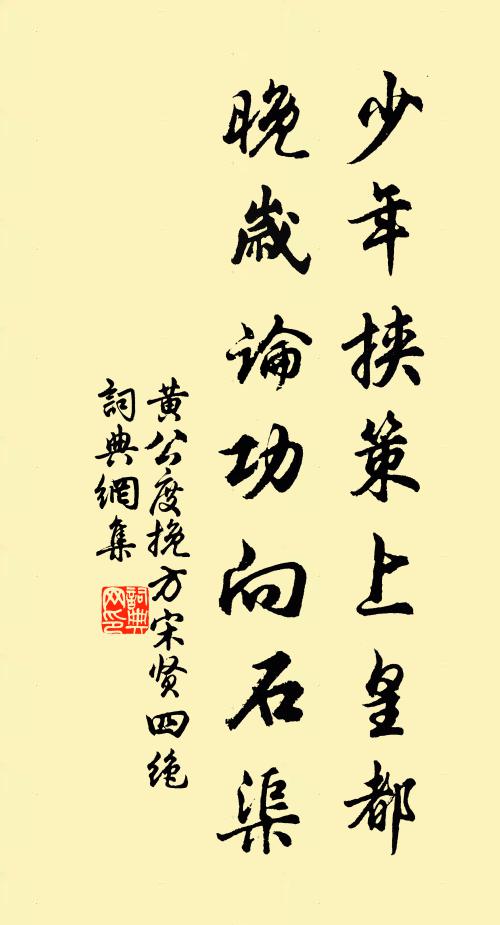 少年挾策上皇都
晚歲論功向石渠
黄公度挽方宋贤四绝
詞典網集
詞典網印